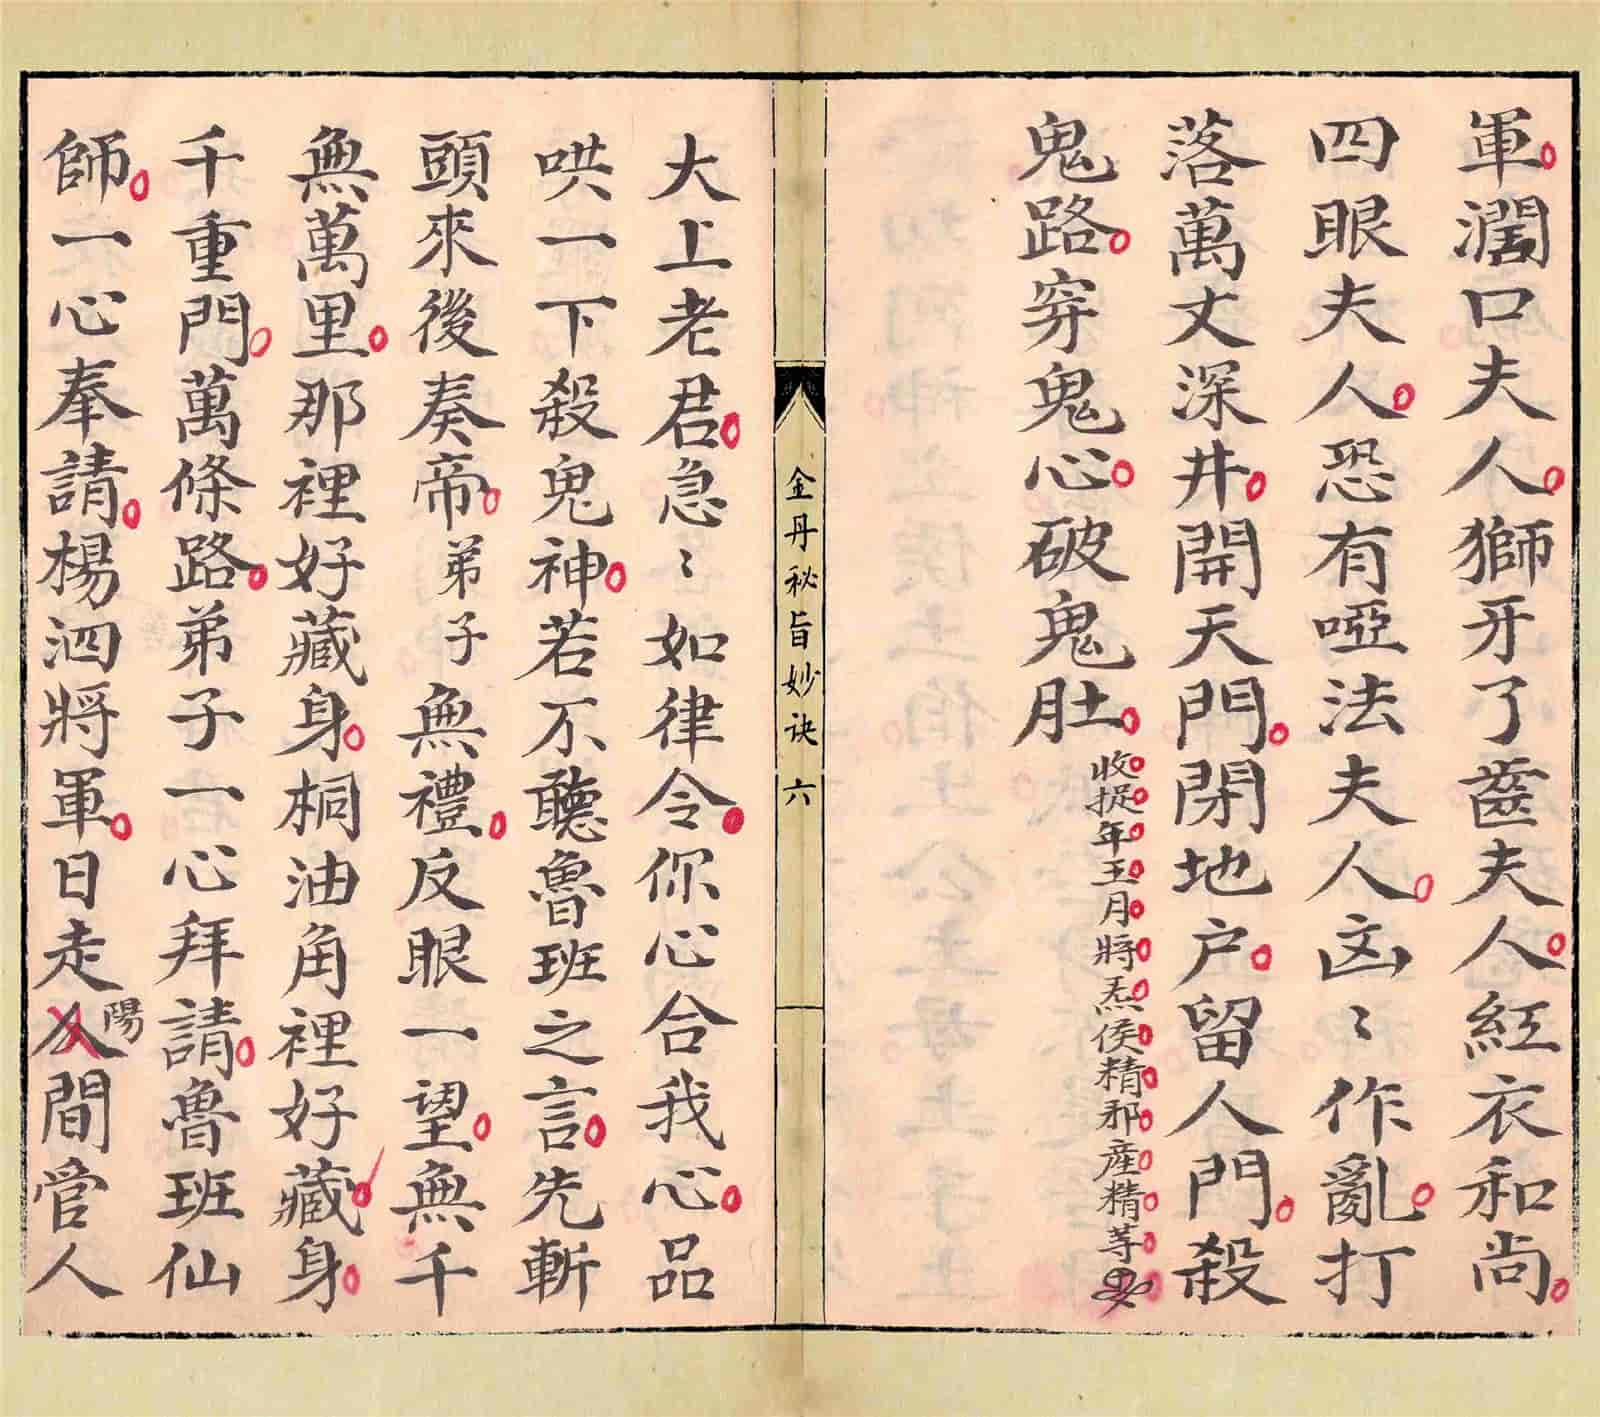 軍。濶口夫人。獅牙了齒夫人。紅衣和尚。
四眼夫人。恐有啞法夫人。凶〻作亂。打
落萬丈深井。開天門。閉地户。留人門。殺
鬼路。穿鬼心。破鬼肚。收捉年王月將炁侯精邪産精等
金丹秘旨妙诀 六
大上老君。急〻如律令。你心合我心。品
哄一下殺鬼神。若不聽魯班之言。先斬
頭來後奏帝。弟子無禮。反眼一望。無千
無萬里。那裡好藏身。桐油角裡好藏身。
千重門。萬條路。弟子一心拜請。魯班仙
師。一心奉請。楊泗將軍。日走陽間管人